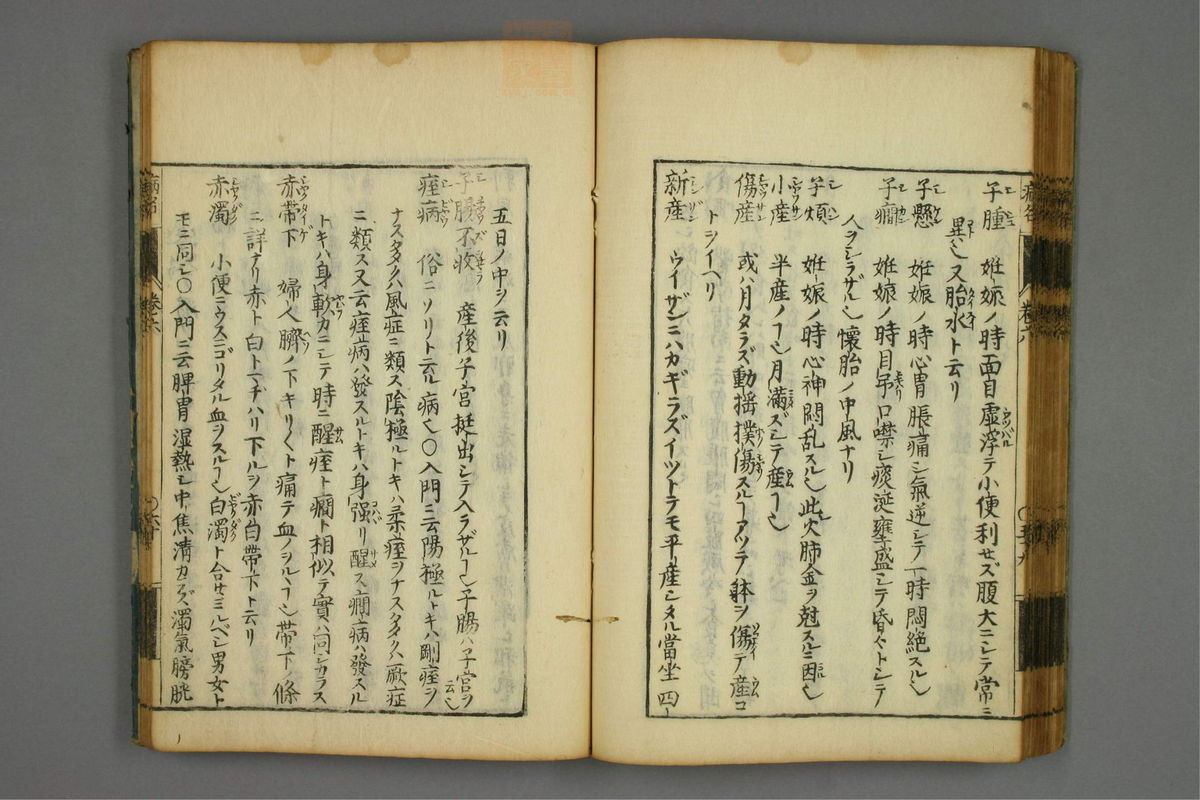 子腫 妊娠ノ時面目虚浮テ小便利セズ腹大ニシテ常ニ
異也又胎水ト云リ
子懸 妊娠ノ時心胃脹痛シ氣逆シテ一時悶絶スル也
子癇 妊娠ノ時目吊口噤シ痰涎壅盛シテ昏々トシテ
人ヲシラザル也懐胎ノ中風ナリ
子煩 妊娠ノ時心神悶乱スル也此火肺金ヲ尅スルニ因也
小産 半産ノ也月満ズシテ産也
傷産 或ハ月タラズ動揺撲傷スルアツテ躰ヲ傷テ産コ
トシイヘリ
新産 ウイザンニハカギラズイツトテモ平産シタル當坐四十
五日ノ中ヲ云リ
子腸不收 産後子宮挺出シテ入ラザル也子腸ハ子宮ヲ云也
痓病 俗ニソリト云ル病也〇入門ニ云陽極ルトキハ剛痓ヲ
ナスタタ〱ハ風症ニ類ス陰極ルトキハ柔痓ヲナスタタ〱ハ厥症
ニ類ス又云痓病ハ發スルトキハ身強リ醒ス癇病ハ發スル
トキハ身軟カニシテ時ニ醒痓ト癇ト相似テ實ハ同シカラス
赤帶下 婦人臍ノ下キリ〱ト痛テ血ノヲルヽ也帶下ノ條
ニ詳ナリ赤ト白トマヂハリ下ルヲ赤白帶下ト云リ
赤濁 小便ニウスゴリタル血ヲスル也白濁ト合セミルベシ男女ト
モニ同シ〇入門ニ云脾胃湿熱シ中焦清カラズ濁氣膀胱